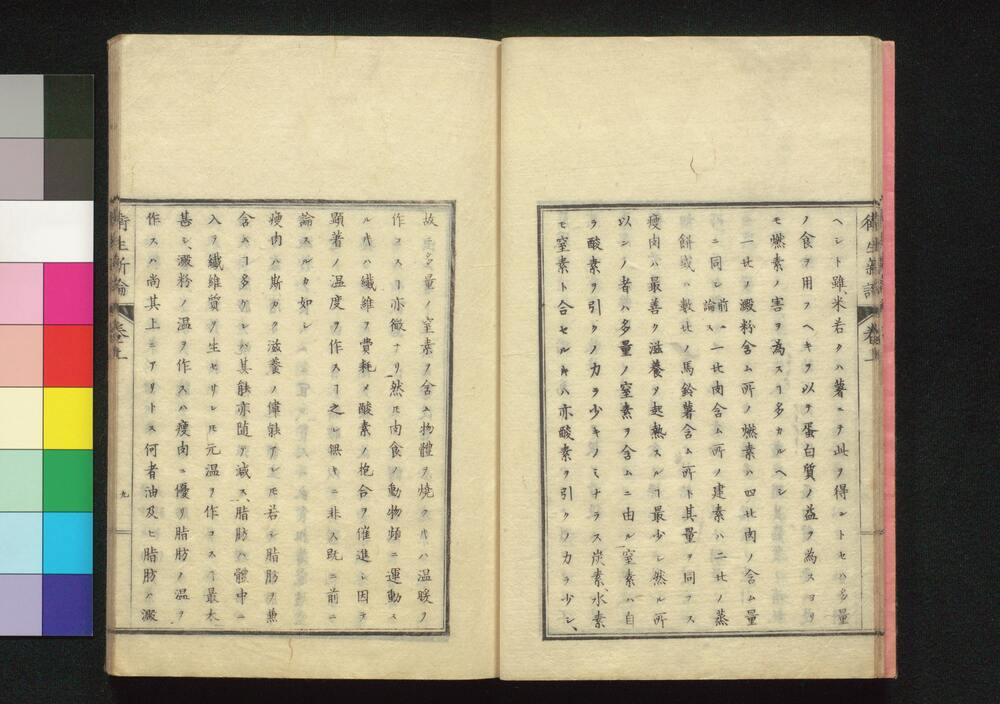 ヘシト雖、米若クハ薯ニテ此ヲ得ントセハ多量
ノ食ヲ用フヘキヲ以テ蛋白質ノ益ヲ為スヨリ
モ燃素ノ害ヲ為スヿ多カルヘシ
一比ノ澱粉含ム所ノ燃素ハ四比肉ノ含ム量
ニ同シ前ニ論ス一比肉含ム所ノ建素ハ二比ノ蒸
餅或ハ數比ノ馬鈴薯含ム所ト其量ヲ同フス
瘦肉ハ最善ク滋養ヲ起熱スルヿ最少シ然ル所
以ンノ者ハ多量ノ窒素ヲ含ムニ由ル窒素ハ自
ラ酸素ヲ引クノ力ラ少キノミナラス炭素、水素
モ窒素ト合セルキハ亦酸素ヲ引クノ力ラ少シ、
衛生新論
卷之上
故多量ノ窒素ヲ含ム物體ヲ燒クキハ温暖ヲ
作コスヿ亦微ナリ然𪜈肉食ノ動物頻ニ運動ス
ルキハ纖維ヲ費耗メ酸素ノ抱合ヲ催進シ因テ
顯著ノ温度ヲ作スヿ之レ無キニ非ス既ニ前ニ
論スルカ如シ
瘦肉ハ斯カク滋養ノ偉能アレ𪜈若シ脂肪ヲ兼
含ムヿ多ケレハ其能亦随テ減ス、脂肪ハ體中ニ
入ヲ纖維質ヲ生セサレ𪜈元温ヲ作コスヿ最大
甚シ、澱粉ノ温ヲ作スハ瘦肉ニ優リ脂肪ノ温ヲ
作スハ尚其上ニアリトス何者油及ヒ脂肪ハ澱
衛生新論
卷之上
九